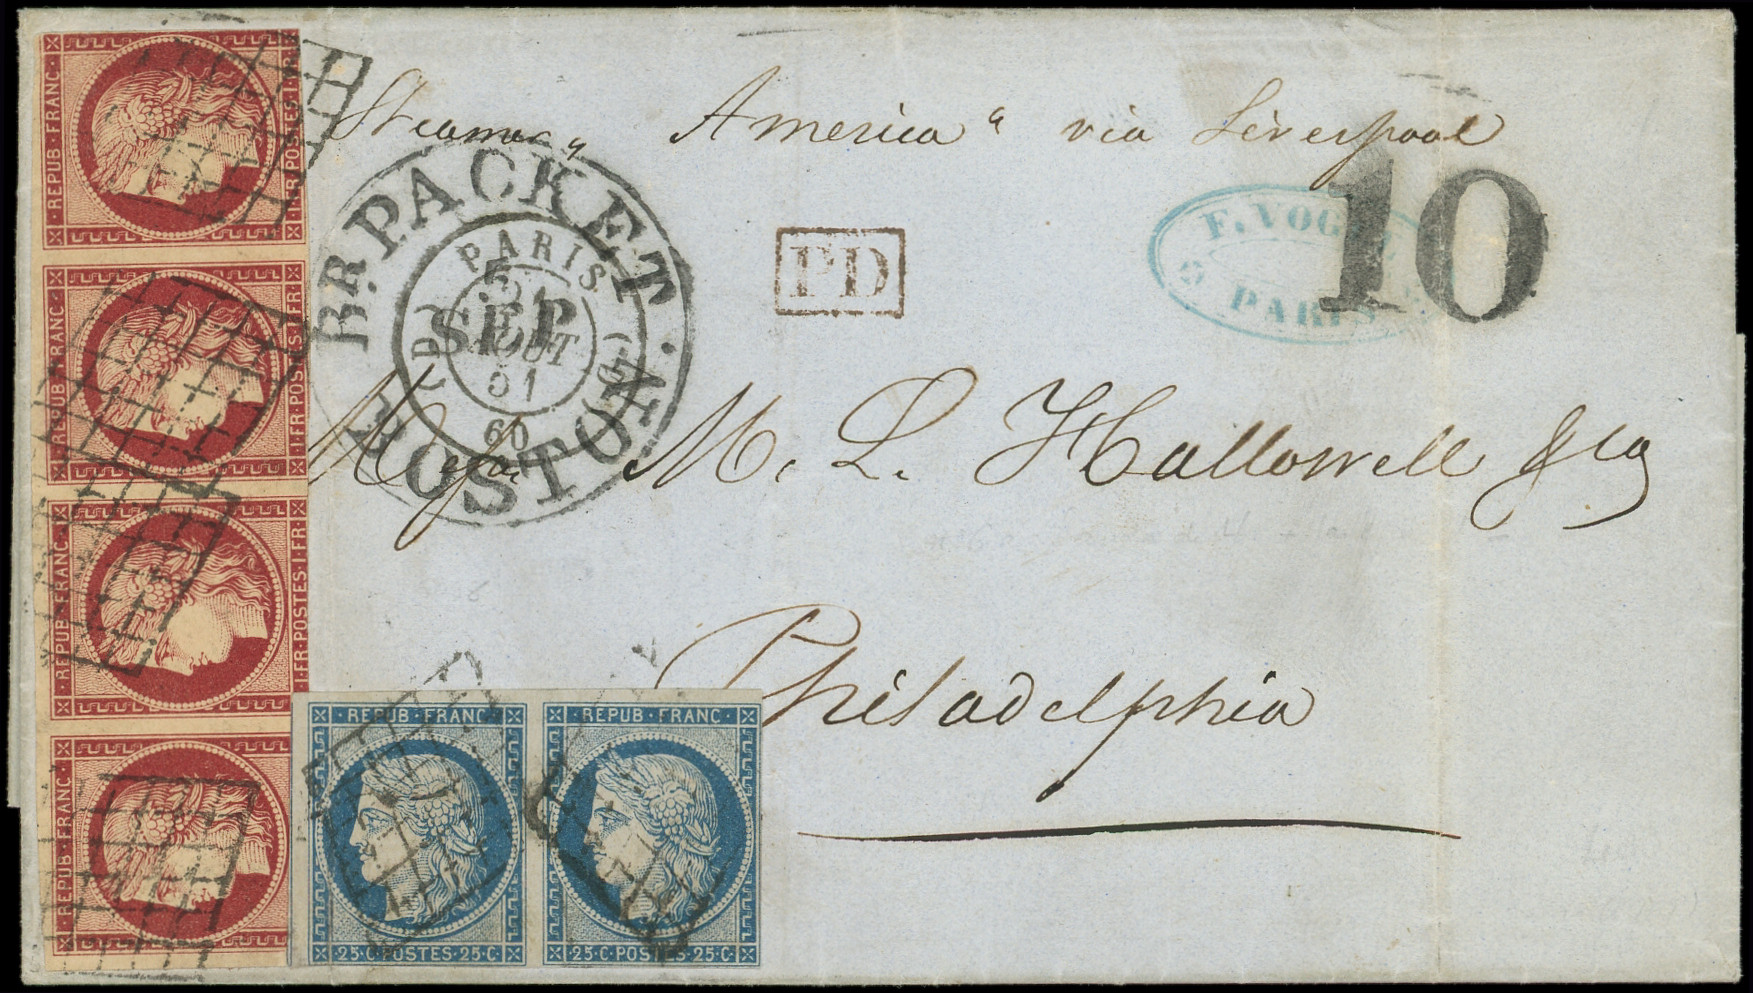 Steamer "America" via Liverpool
REPUB·FRANC·
1·FR·POSTES·1·FR·
REPUB·FRANC·
1·FR·POSTES·1·FR·
REPUB·FRANC·
1·FR·POSTES·1·FR·
REPUB·FRANC·
BR. PACKET
BOSTON
SEP
PARIS
AOUT
51
(60)
PD
F. VOG
PARIS
10
M. L. Hallowell & Co
Philadelphia
·REPUB·FRANC·
25·C·POSTES·25·C·
·REPUB·FRANC·
25·C·POSTES·25·C·